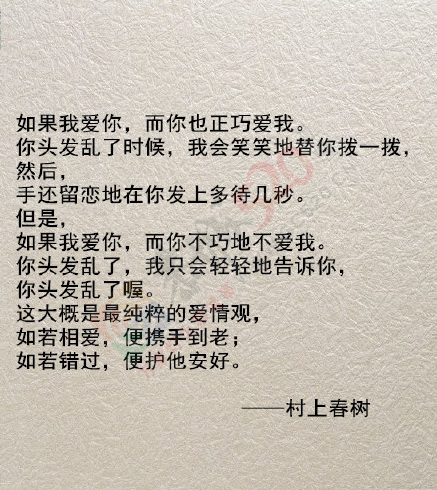 如果我爱你，而你也正巧爱我。
你头发乱了时候，我会笑笑地替你拨一拨，
然后，
手还留恋地在你发上多待几秒。
但是，
如果我爱你，而你不巧地不爱我。
你头发乱了，我只会轻轻地告诉你，
你头发乱了喔。
这大概是最纯粹的爱情观，
如若相爱，便携手到老；
如若错过，便护他安好。
——村上春树